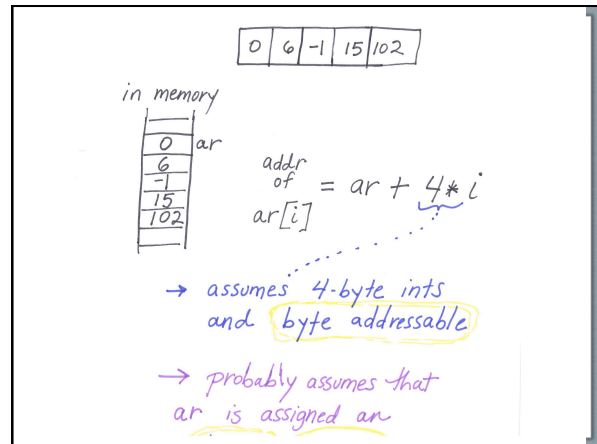 0 6 -1 15 102
in memory
0 ar
6
-1
15
102
addr
of
ar[i] = ar + 4* i
→ assumes 4-byte ints
and byte addressable
→ probably assumes that
ar is assigned an